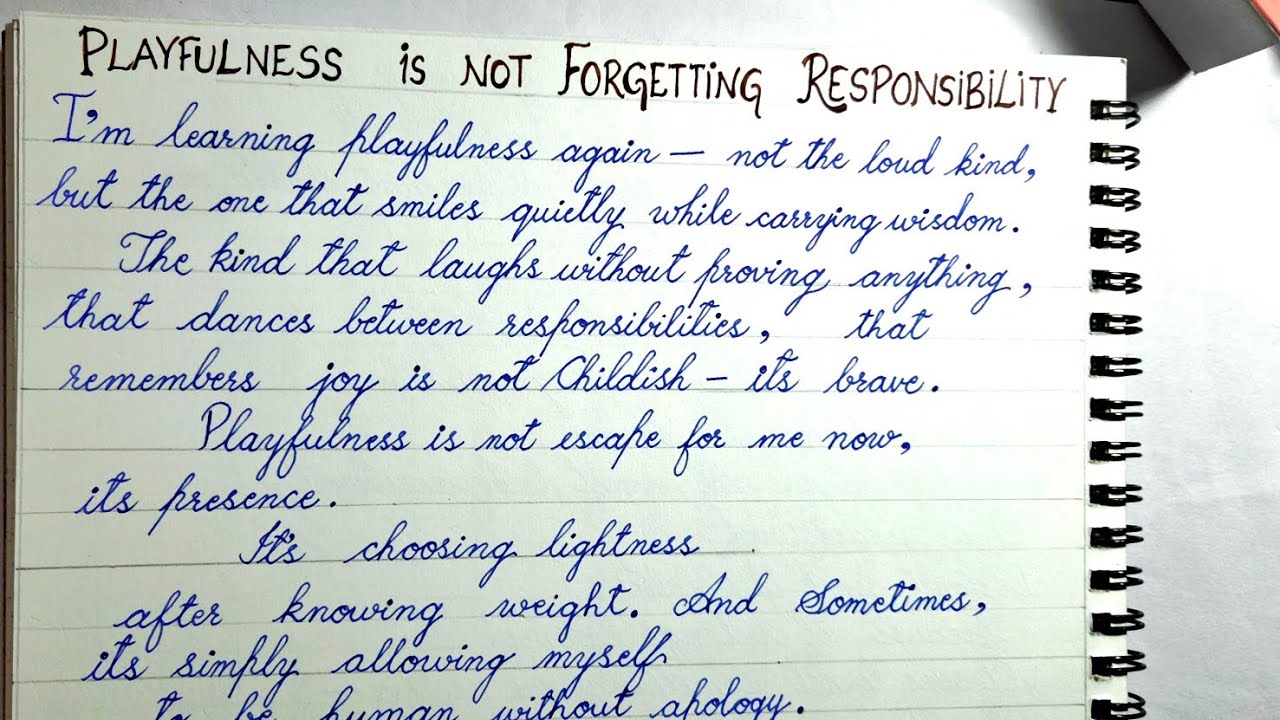 PLAYFULNESS is NOT FORGETTING RESPONSiBiLiTY
I'm learning playfulness again — not the loud kind,
but the one that smiles quietly while carrying wisdom.
The kind that laughs without proving anything,
that dances between responsibilities, that
remembers joy is not Childish – its brave.
Playfulness is not escape for me now,
its presence.
It's choosing lightness
after knowing weight. And Sometimes,
its simply allowing myself
to be human without apology.